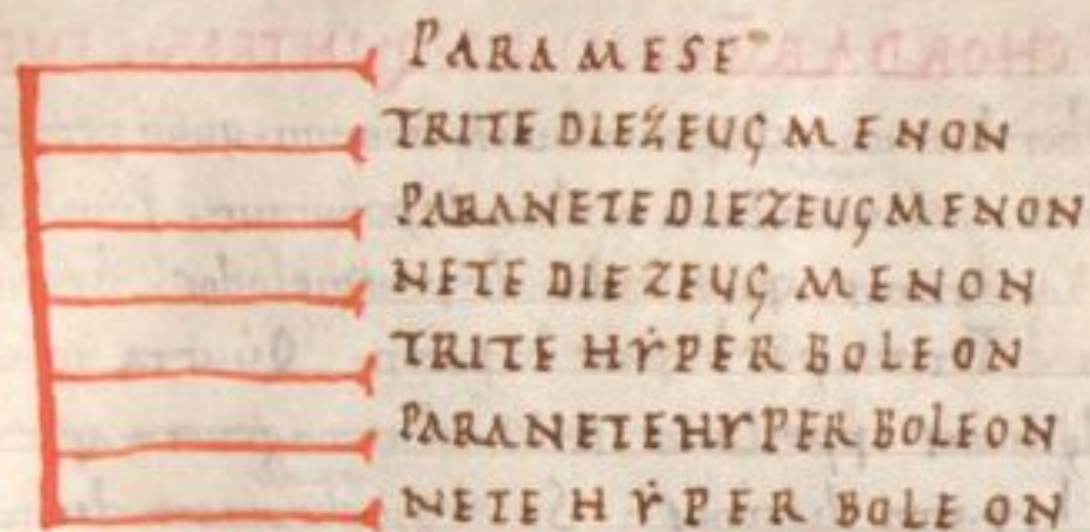 PARAMESE
TRITE DIEZEUGMENON
PARANETE DIEZEUGMENON
NETE DIEZEUGMENON
TRITE HYPERBOLEON
PARANETE HYPERBOLEON
NETE HYPERBOLEON